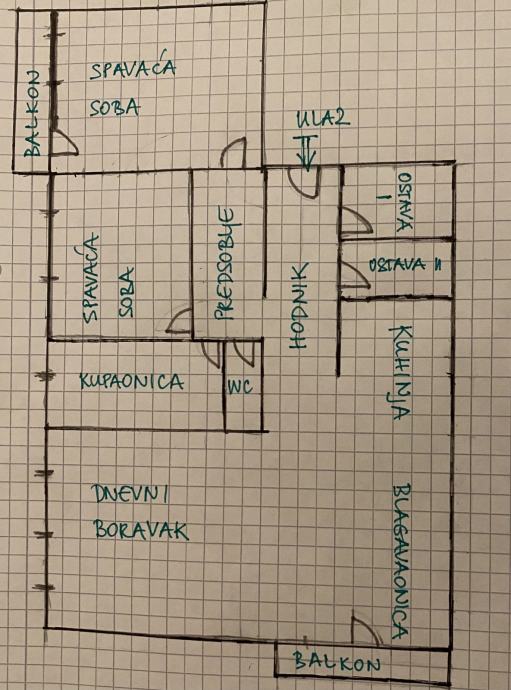 BALKON
SPAVAĆA
SOBA
ULAZ
OSTAVA
I
OSTAVA II
PREDSOBLJE
HODNIK
SPAVAĆA
SOBA
KUHINJA
KUPAONICA
WC
DNEVNI
BORAVAK
BLAGAVAONICA
BALKON